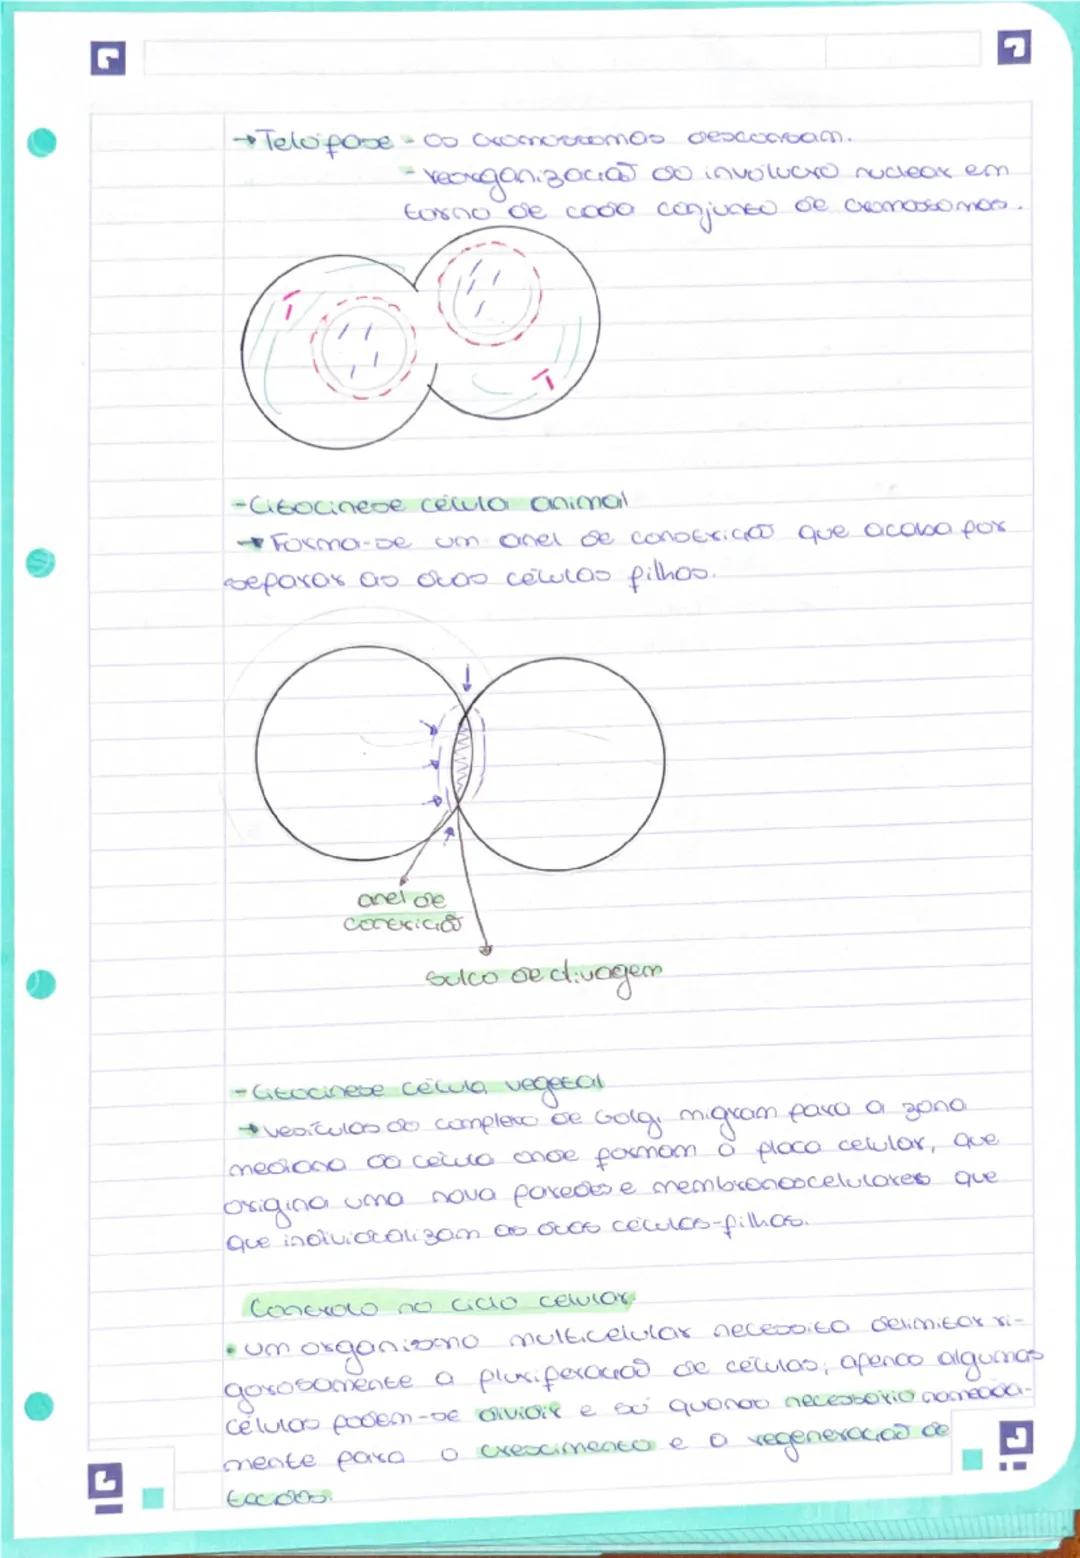 → Telófase - os cromossomas descoram.
- reorganização do invólucro nuclear em
torno de cada conjunto de cromossomas.
- Citocinese célula animal
→ Forma-se um anel de constrição que acaba por
separar as duas células filhas.
anel de
contrição
sulco de clivagem
- Citocinese célula vegetal
→ vesículas do complexo de Golgi migram para a zona
mediana da célula onde formam a placa celular, que
origina uma nova paredes e membranas celulares que
que individualizam as duas células-filhas.
Controlo no ciclo celular
• um organismo multicelular necessita delimitar ri-
gorosamente a pluriferação de células; apenas algumas
células podem-se dividir e só quando necessário nomeada-
mente para o crescimento e a regeneração de
tecidos.